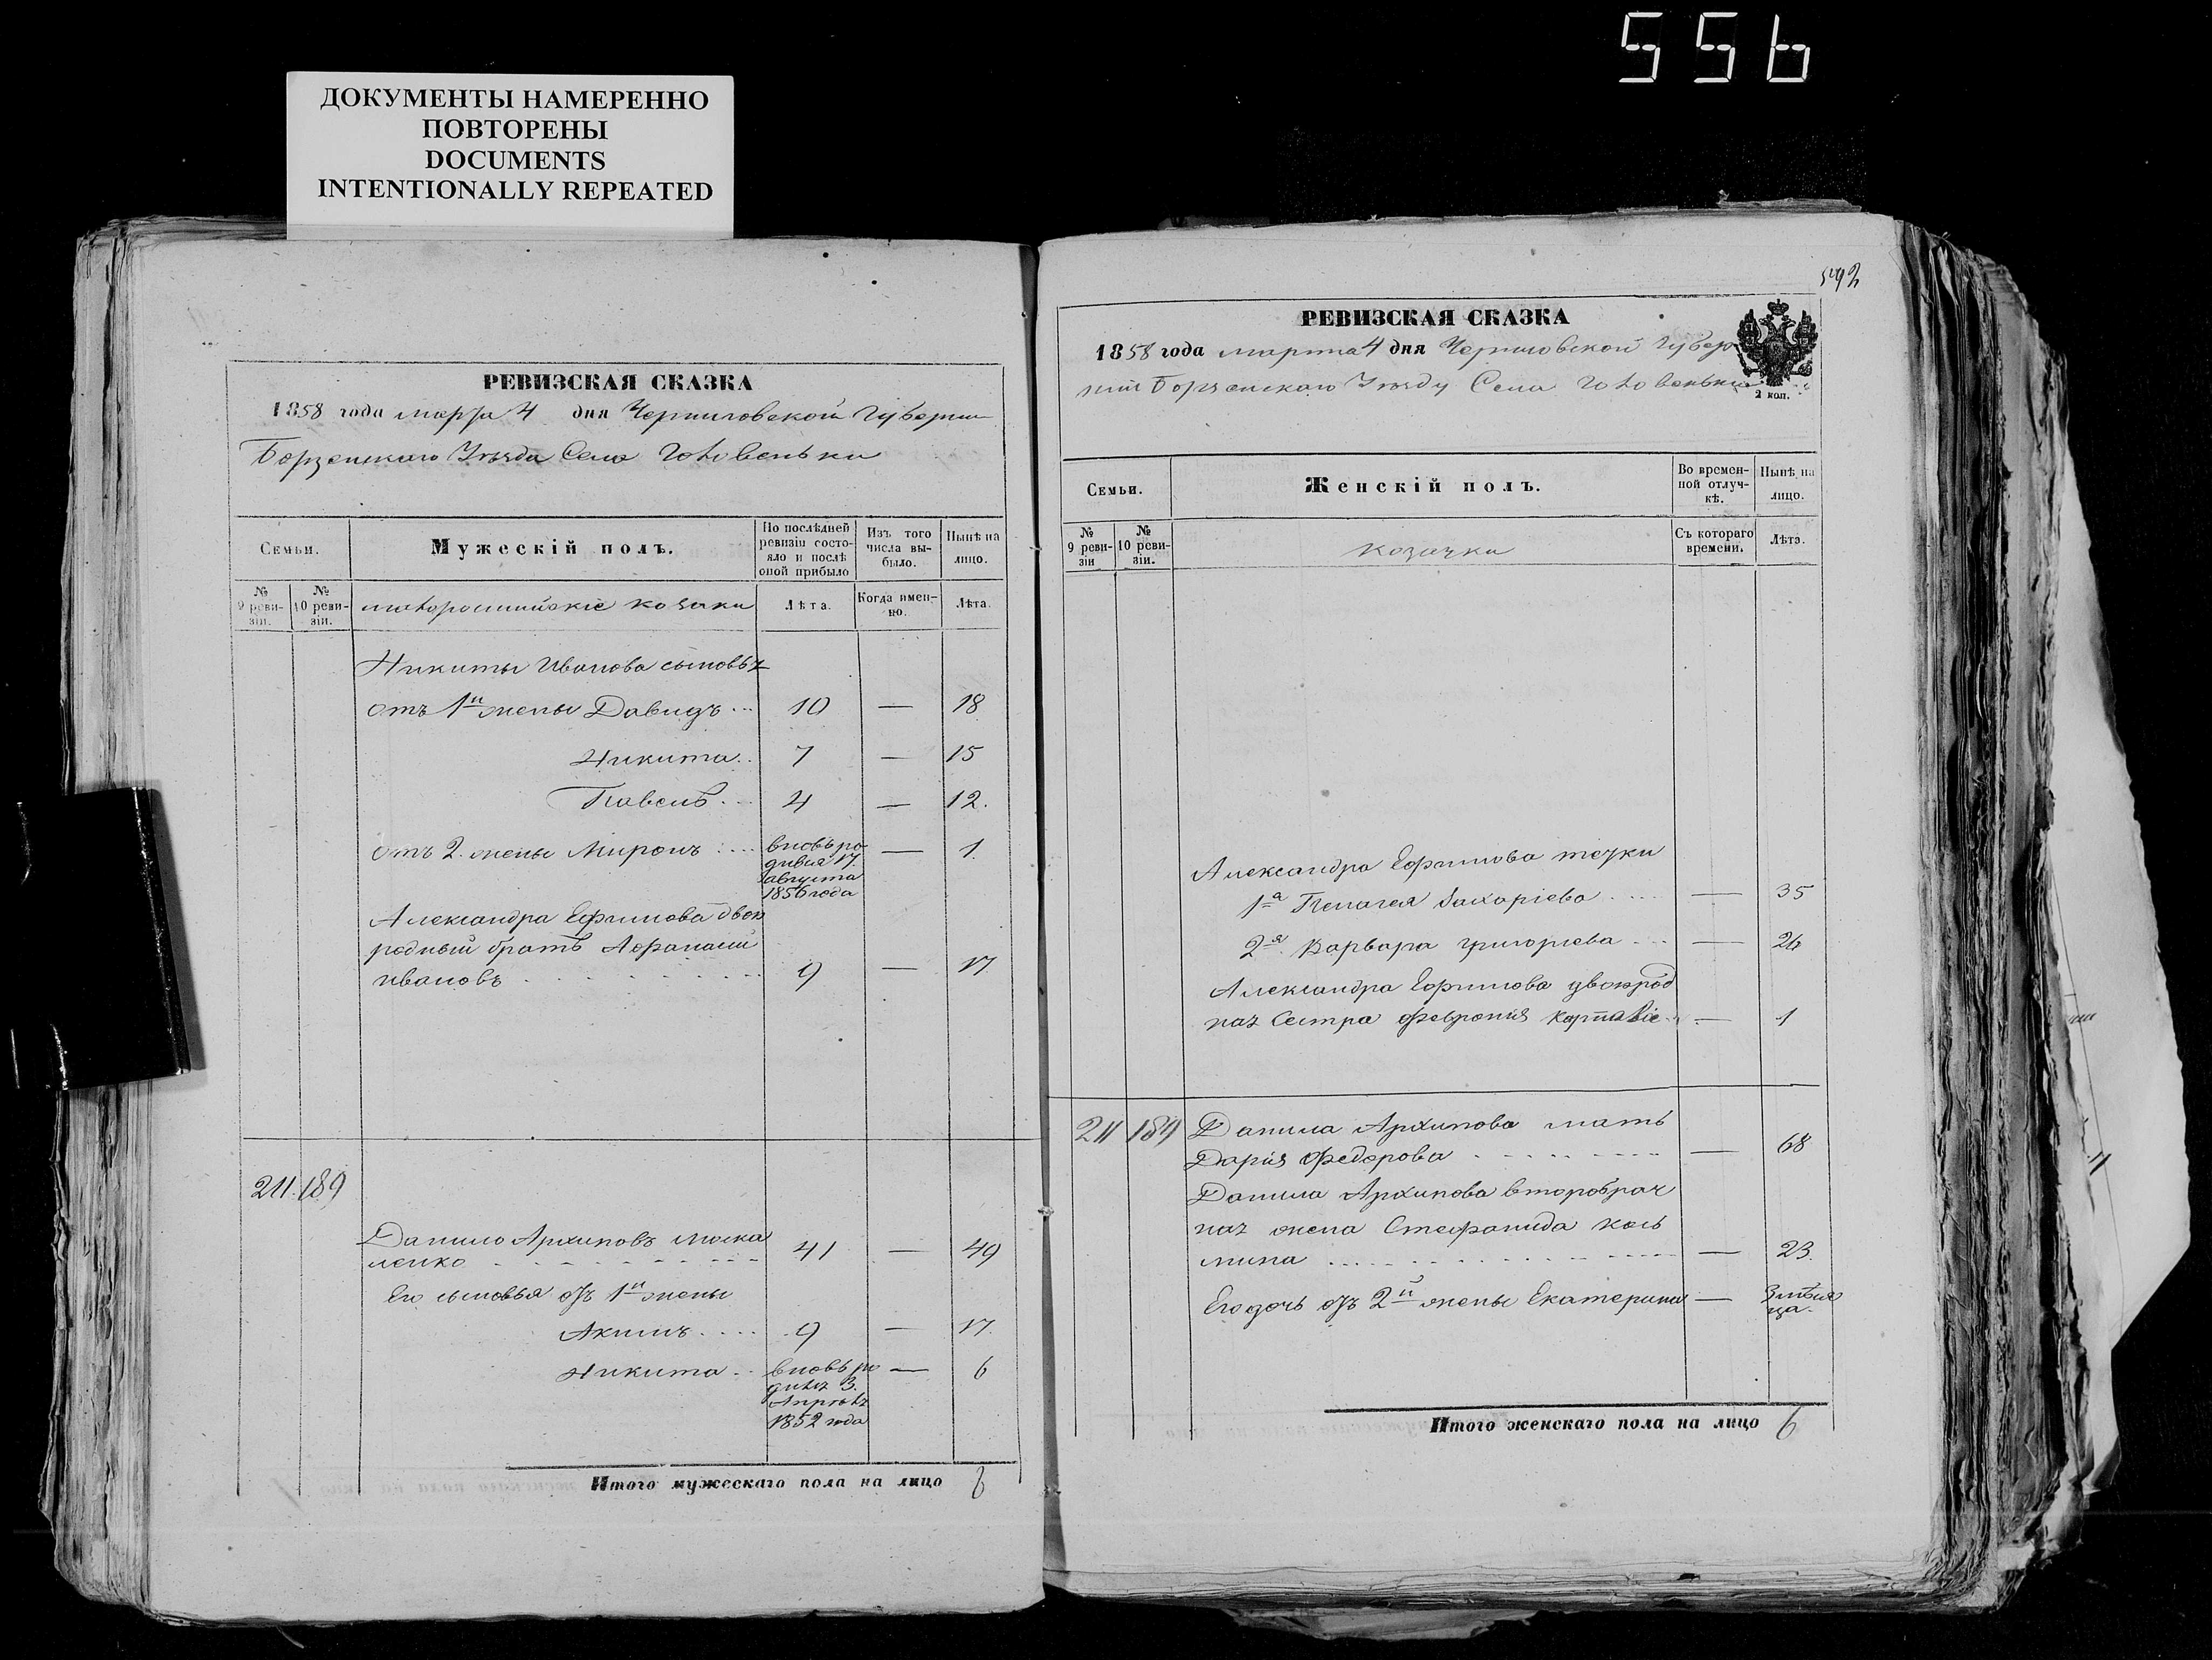 556
ДОКУМЕНТЫ НАМЕРЕННО
ПОВТОРЕНЫ
DOCUMENTS
INTENTIONALLY REPEATED
РЕВИЗСКАЯ СКАЗКА
1858 года марта 4 дня Черниговской Губернии
Борзенскаго Уѣзда Села Головеньки
Семьи.
Мужескій полъ.
По послѣдней ревизіи состояло и послѣ оной прибыло
Изъ того числа выбыло.
Нынѣ на лицо.
№ 9 ревизіи.
№ 10 ревизіи.
малороссийскіе козаки
Лѣта.
Когда именно.
Лѣта.
Никиты Иванова сыновья
отъ 1й жены Давидъ 10 — 18
Никита 7 — 15
Павелъ 4 — 12.
отъ 2 жены Миронъ вновь ро — 1
дился 17
августа
1856 года
Александра Ефимова двою
родный братъ Афанасий
Ивановъ 9 — 17
211 189
Данило Архиповъ Моска
ленко 41 — 49
Его сыновья отъ 1й жены
Акимъ 9 — 17
Никита вновь ро — 6
дился 3
Апрѣля
1852 года
Итого мужескаго пола на лицо 6
592
РЕВИЗСКАЯ СКАЗКА
1858 года марта 4 дня Черниговской Губер
нии Борзенскаго Уѣзда Села Головеньки
2 коп.
Семьи.
Женскій полъ.
Во временной отлучкѣ.
Нынѣ на лицо.
№ 9 ревизіи
№ 10 ревизіи.
козачки
Съ котораго времени.
Лѣта.
Александра Ефимова
1а Пелагея Захаріева — 35
2я Варвара Григорьева — 26
Александра Ефимова двоюрод
ная Сестра Феврония — 1
211 189 Данила Архипова мать
Дария Федорова — 68
Данила Архипова второбрач
ная жена Стефанида Козь
мина — 23
Его дочь отъ 2й жены Екатерина — 3 мѣся
ца.
Итого женскаго пола на лицо 6